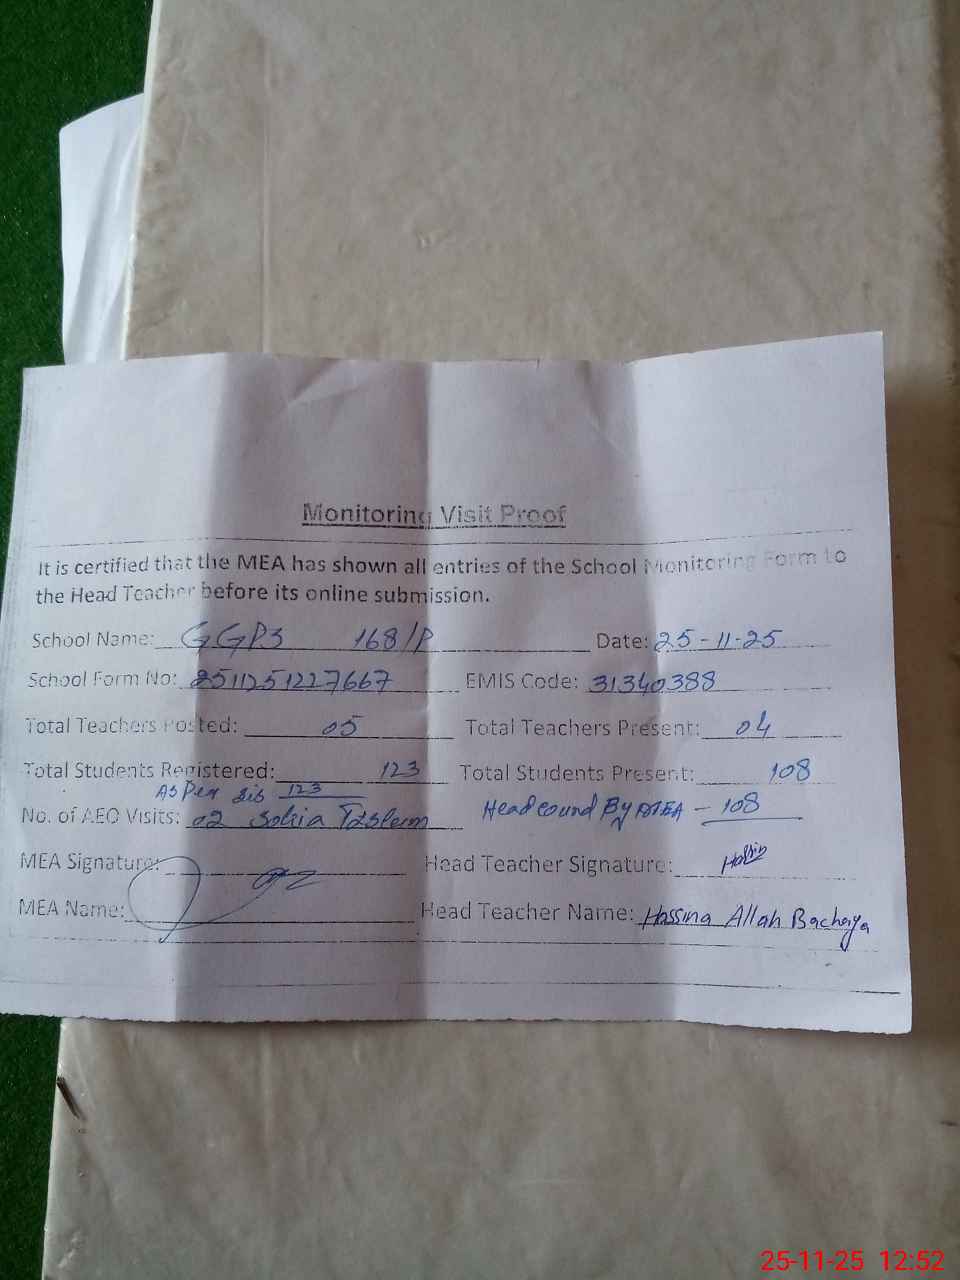 Monitoring Visit Proof
It is certified that the MEA has shown all entries of the School Monitoring Form to
the Head Teacher before its online submission.
School Name: GGPS 168/P Date: 25-11-25
School Form No: 2511251227667 EMIS Code: 31340388
Total Teachers Posted: 05 Total Teachers Present: 04
Total Students Registered: 123 Total Students Present: 108
As Per sis 123
No. of AEO Visits: 02 Tasleem Headcound By MEA - 108
MEA Signature: Head Teacher Signature:
MEA Name: Head Teacher Name: Hassina Allah Bachaya
25-11-25 12:52